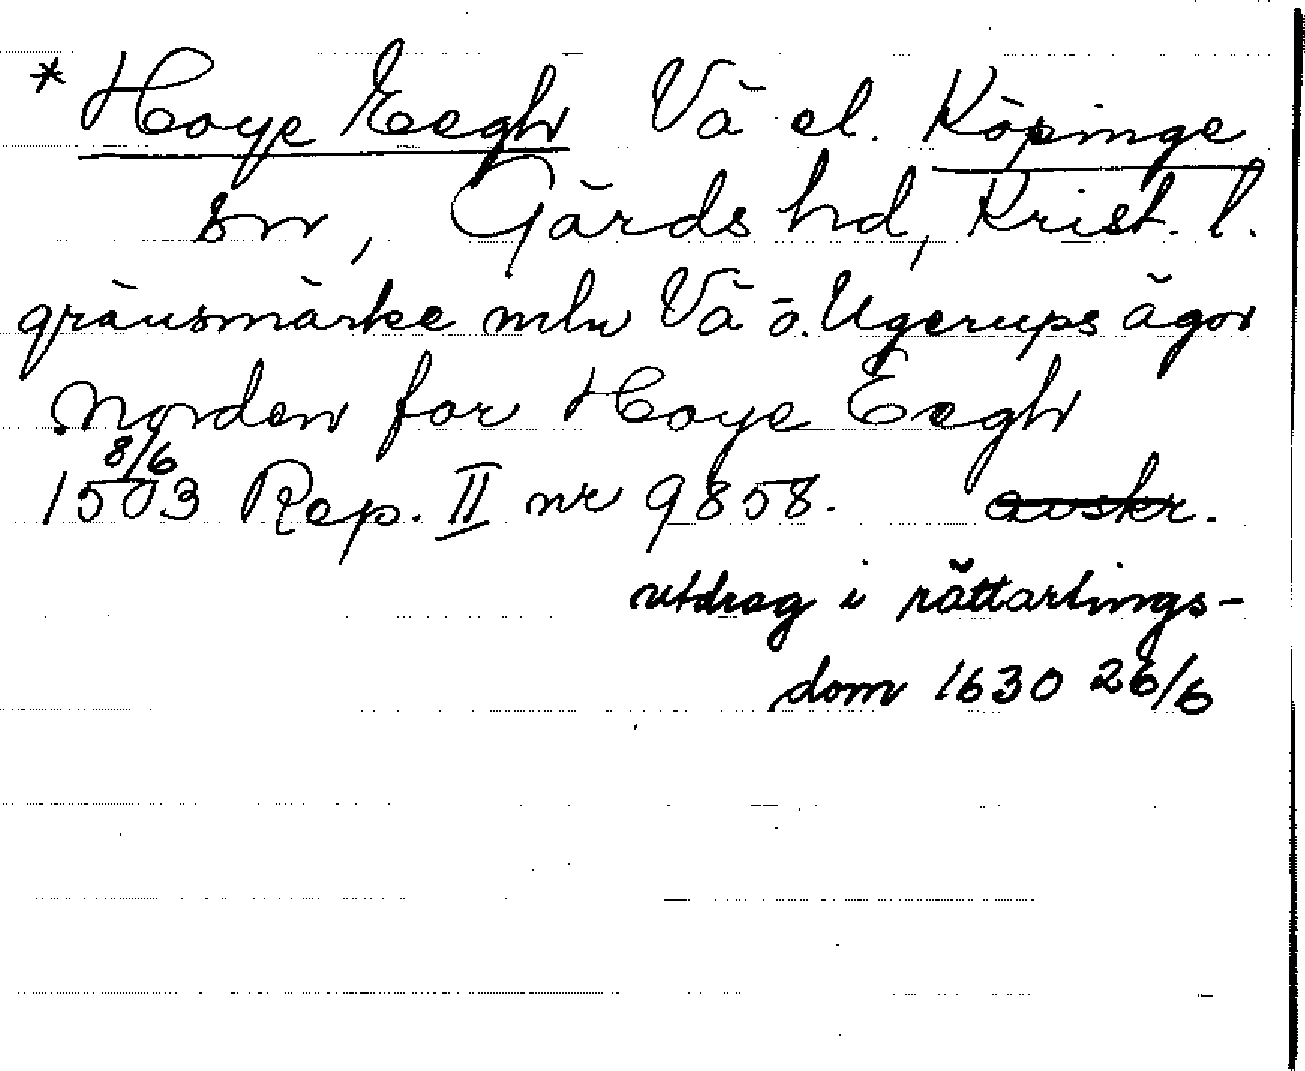 * Hoye Eegh Vä el. Köpinge
sn, Gärds hd, Krist. l.
gränsmärke mln Vä o. Ugerups ägor
Norden for Hoye Eegh
8/6
1503 Rep. II nr 9858. avskr.
utdrag i rättartings-
dom 1630 26/6